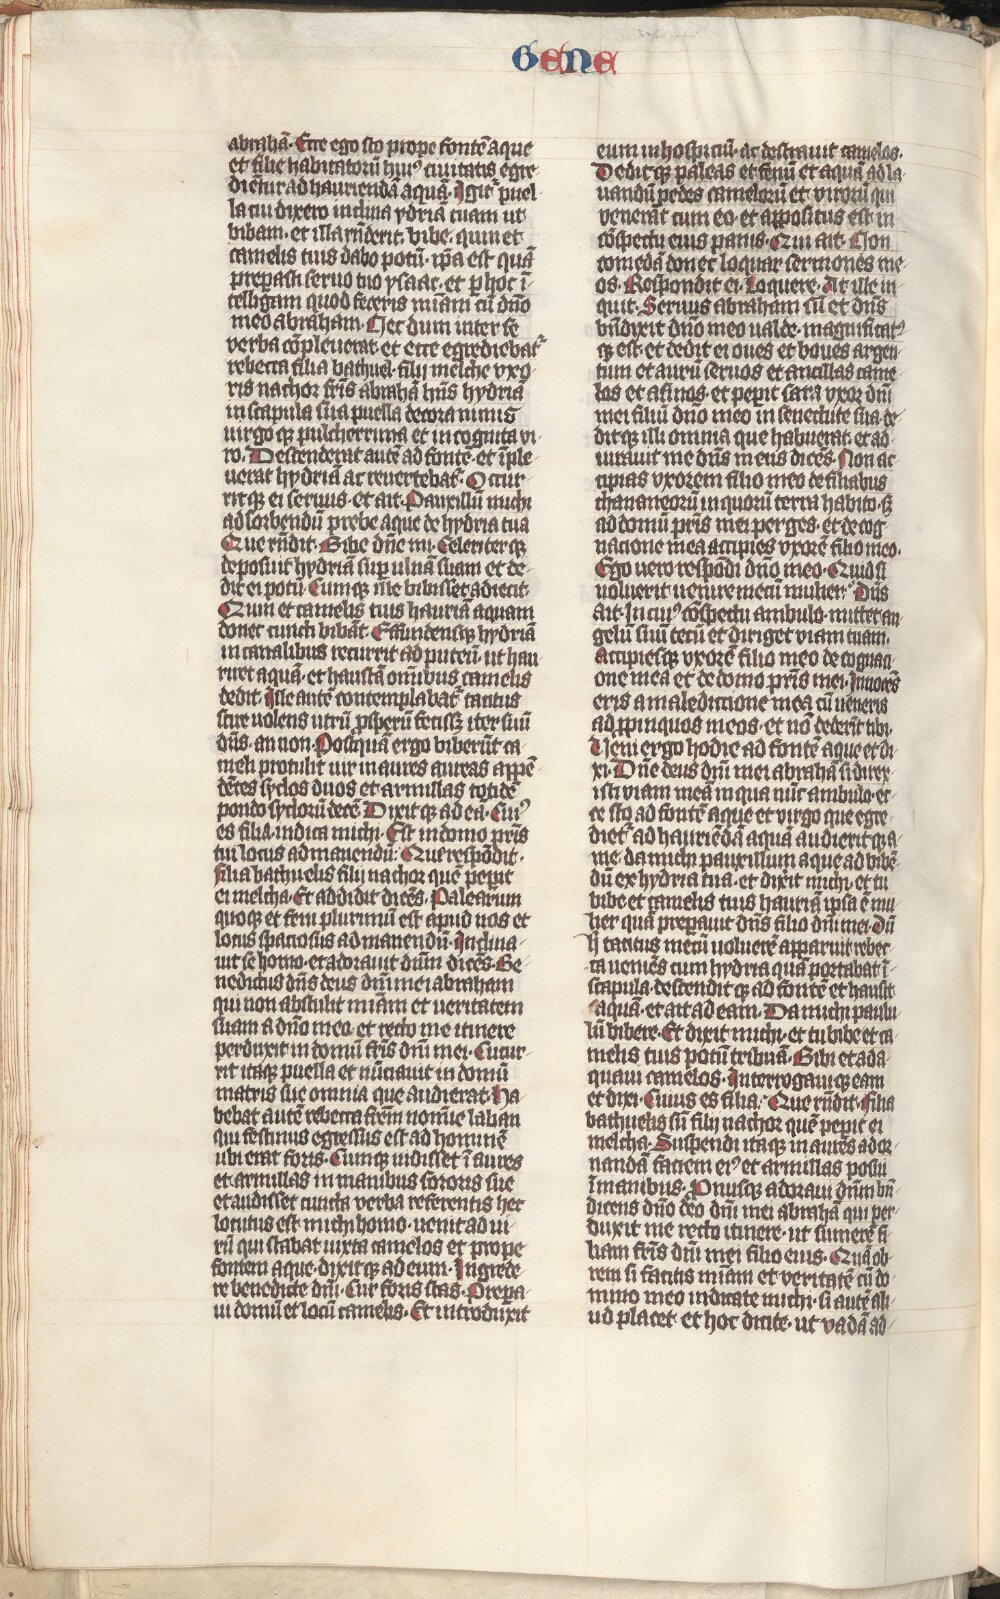 GENE
abrahā. Ecce ego sto prope fontē aque
et filie habitatorū huiꝰ ciuitatis egre
dientur ad hauriendā aquā. Igitᷣ puel
la cui dixero inclina ydriā tuam ut
bibam. et illa rn̄derit. bibe. quin et
camelis tuis dabo potū. ip̄a est quā
preparasti seruo tuo ysaac. et p hoc ī
telligam quod feceris miām cū dn̄o
meo abraham. Nec dum inter se
verba cōpleuerat. et ecce egrediebatᷣ
rebecca filia bathuel. filij melche vxo
ris nachor fr̄is abrahā hn̄s hydriā
in scapula sua puella decora nimis
uirgo qꝫ pulcherrima et incognita vi
ro. Descenderat autē ad fontē. et īple
uerat hydriā ac reuertebatᷣ. Occur
rit qꝫ ei seruus. et ait. Pauxillū michi
ad sorbendū prebe aque de hydria tua
Que rn̄dit. Bibe dn̄e mi. Celeriter qꝫ
deposuit hydriā sup ulnā suam et de
dit ei potū. Cumqꝫ ille bibisset adiecit.
Quin et camelis tuis hauriā aquam
donec cuncti bibāt. Effundensqꝫ hydriā
in canalibus recurrit ad puteū. ut hau
riret aquā. et haustā om̄ibus camelis
dedit. Ille autē contemplabatᷣ tacitus
scire uolens utrū ꝓsperū fecissꝫ iter suū
dn̄s. an non. Postquā ergo biberūt ca
meli protulit uir inaures aureas appē
dētes syclos duos et armillas totidē
pondo syclorū decē. Dixit qꝫ ad eā. Cuiꝰ
es filia. indica michi. Est in domo pr̄is
tui locus ad manendū. Que respōdit.
filia bathuelis filij nachor quē pepit
ei melcha. Et addidit dicēs. Palearum
quoqꝫ et feni plurimū est apud nos et
locus spaciosus ad manendū. Inclina
uit se homo. et adorauit dūm dicēs. Be
nedictus dn̄s deus dn̄i mei abraham
qui non abstulit miām et ueritatem
suam a dn̄o meo. et recto me itinere
perduxit in domū fr̄is dn̄i mei. Cucur
rit itaqꝫ puella et nūciauit in domū
matris sue omnia que audierat. Ha
bebat autē rebecca fr̄em nomīe laban
qui festinus egressus est ad hominē
ubi erat foris. Cumqꝫ uidisset ī aures
et armillas in manibus sororis sue
et audisset cuncta verba referentis hec
locutus est michi homo. uenit ad ui
rū qui stabat iuxta camelos et prope
fontem aque. dixit qꝫ ad eum. Ingrede
re benedicte dn̄i. Cur foris stas. Prepa
ui domū et locū camelis. Et introduxit
eum in hospiciū. ac destrauit camelos.
Dedit qꝫ paleas et fenū et aquā ad la
uandū pedes camelorū et virorū qui
venerāt cum eo. et appositus est in
cōspectu eius panis. Qui ait. Non
comedā donec loquar sermones me
os. Respondit ei. Loquere. At ille in
quit. Seruus abraham sū et dn̄s
bn̄dixit dn̄o meo ualde. magnificatꝰ
qꝫ est. et dedit ei oues et boues argen
tum et aurū seruos et ancillas came
los et asinos. et pepit sara vxor dn̄i
mei filiū dn̄o meo in senectute sua. de
dit qꝫ illi omnia que habuerat. et ad
iurauit me dn̄s meus dicēs. Non ac
cipias vxorem filio meo de filiabus
chananeorū in quorū terra habito. sꝫ
ad domū pr̄is mei perges. et de cog
nacione mea accipies vxorē filio meo.
Ego uero respōdi dn̄o meo. Quid si
voluerit uenire mecū mulier. Dn̄s
ait. In cuiꝰ cōspectu ambulo. mittet an
gelū suū tecū et diriget viam tuam.
Accipiesqꝫ vxorē filio meo de cognaci
one mea et de domo pr̄is mei. Innocēs
eris a maledictione mea cū ueneris
ad ꝓpinquos meos. et nō dederīt tibi.
Veni ergo hodie ad fontē aque et di
xi. Dn̄e deus dn̄i mei abrahā si direx
isti viam meā in qua nūc ambulo. ec
ce sto ad fontē aque et virgo que egre
dietᷣ ad hauriēdā aquā audierit qꝫ a
me. da michi pauxillum aque ad bibē
dū ex hydria tua. et dixit michi. et tu
bibe et camelis tuis hauriā ipsa ē mu
lier quā preparauit dn̄s filio dn̄i mei. Dū
hͨ tacitus mecū uoluerē apparuit rebec
ca ueniēs cum hydria quā portabat ī
scapula. descendit qꝫ ad fontē et hausit
aquā. et ait ad eam. Da michi paulu
lū bibere. Et dixit michi. et tu bibe et ca
melis tuis potū tribuā. Bibi et ada
quaui camelos. Interrogaui qꝫ eam
et dixi. Cuius es filia. Que rn̄dit. Filia
bathuelis sū filij nachor quē pepit ei
melcha. Suspendi itaqꝫ inaures ador
nandā faciem eiꝰ et armillas posui
ī manibus. Pnusqꝫ adoraui dn̄m bn̄
dicens dn̄o deo dn̄i mei abrahā qui per
duxit me recto itinere. ut sumerē fi
liam fr̄is dn̄i mei filio eius. Quā ob
rem si facitis miām et veritatē cū do
mino meo indicate michi. si autē ali
ud placet et hoc dicite. ut vadā ad